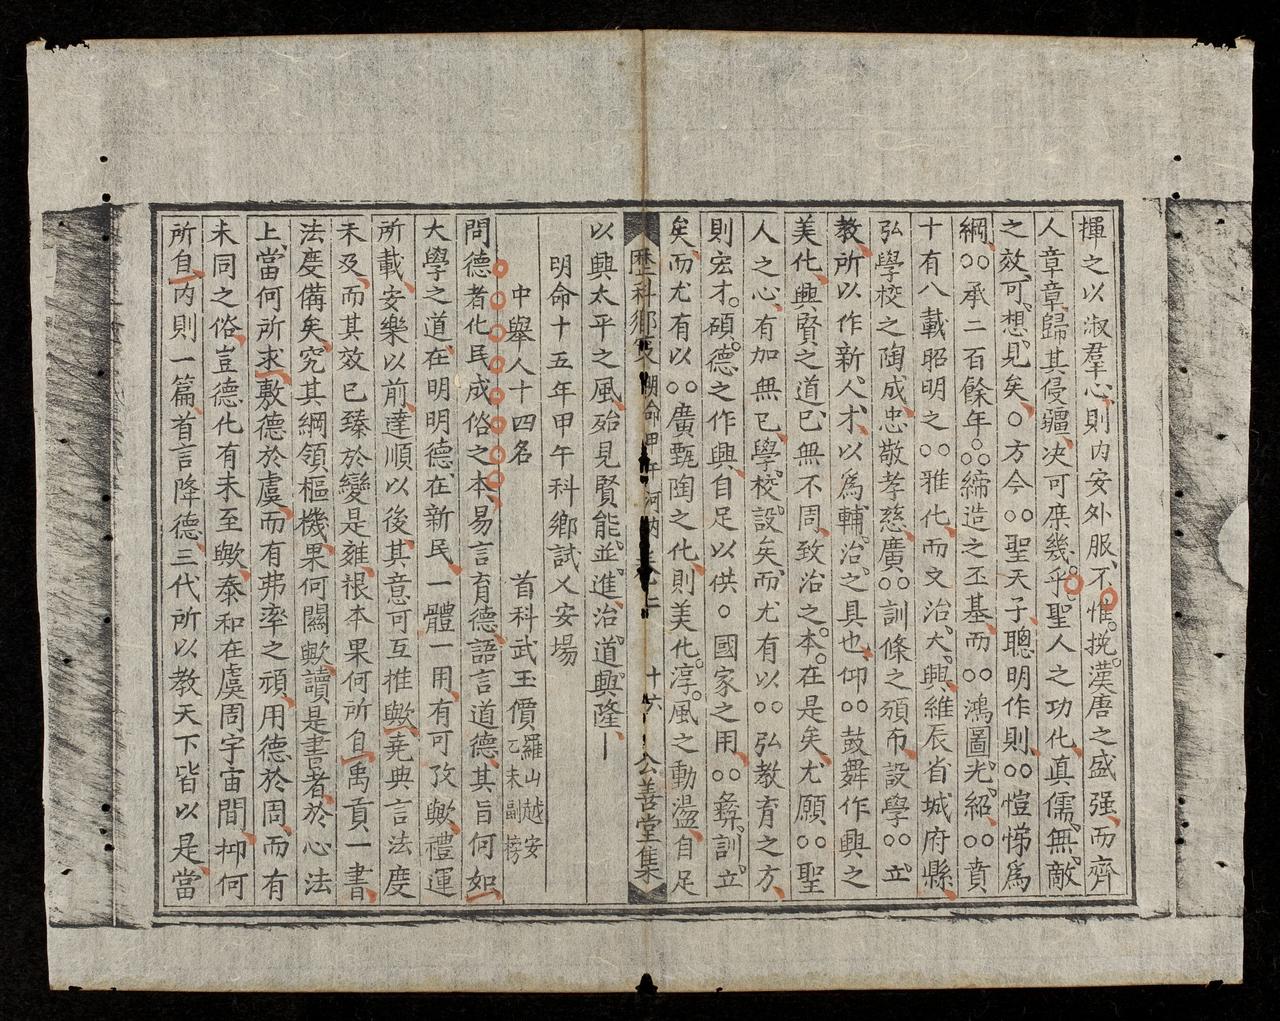 揮之以淑羣心則内安外服不惟挽漢唐之盛强而齊
人章章歸其侵疆决可庶幾乎聖人之功化真儒無敵
之效可想見矣○方今○○聖天子聰明作則○○愷悌爲
綱○○承二百餘年○○締造之丕基而○○鴻圖光紹○○賁
十有八載昭明之○○雅化而文治大興維辰省城府縣
弘學校之陶成忠敬孝慈廣○○訓條之頒布設學○○立
教所以作新人才以爲輔治之具也仰○○鼓舞作興之
美化興賢之道已無不周致治之本在是矣尤願○○聖
人之心有加無已學校設矣而尤有以○○弘教育之方
則宏才碩德之作興自足以供○國家之用○○彝訓立
矣而尤有以○○廣甄陶之化則美化淳風之動盪自足
歷科鄉 河 二 十六 公善堂集
以興太平之風殆見賢能並進治道興隆
明命十五年甲午科鄉試乂安場
中舉人十四名 首科武玉價羅山越安乙未副榜
問德者化民成俗之本易言育德語言道德其旨何如
大學之道在明明德在新民一體一用有可攷歟禮運
所載安樂以前達順以後其意可互推歟堯典言法度
未及而其效已臻於變是雍根本果何所自禹貢一書
法度備矣究其綱領樞機果何關歟讀是書者於心法
上當何所求敷德於虞而有弗率之頑用德於周而有
未同之俗豈德化有未至歟泰和在虞周宇宙間抑何
所自内則一篇首言降德三代所以教天下皆以是當